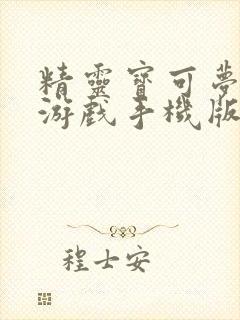 精靈寶可夢
游戲手機版
程士安